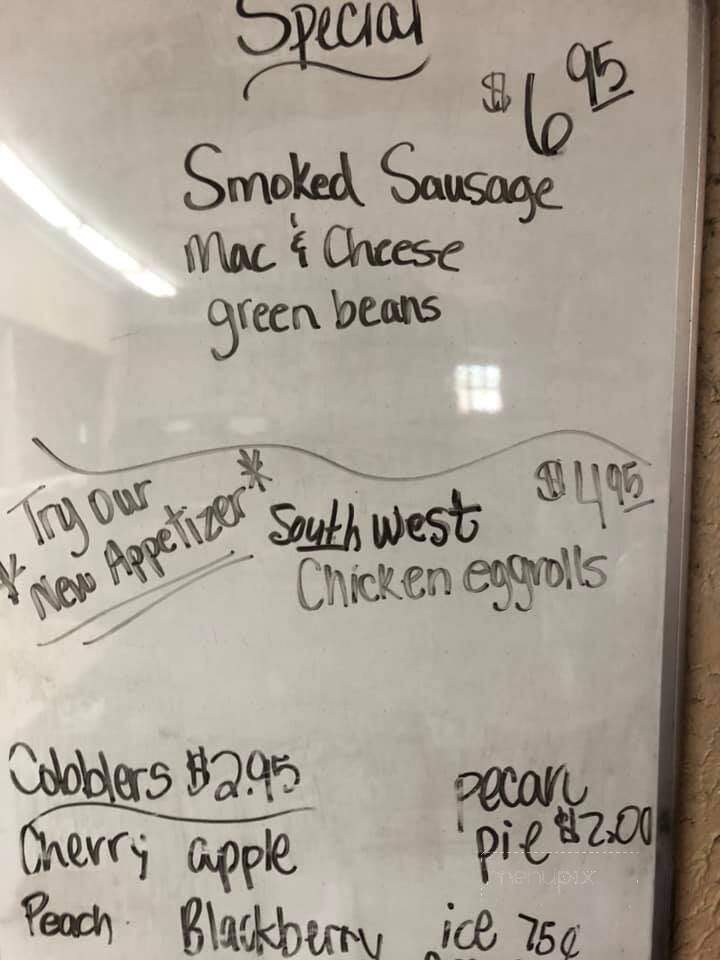 Special
$6 95
Smoked Sausage
Mac & Cheese
green beans
* Try our
New Appetizer *
South west
Chicken eggrolls
$4 95
Cobblers $2.95
Cherry apple
Peach Blackberry
pecan
pie $2.00
ice 75¢
menupix